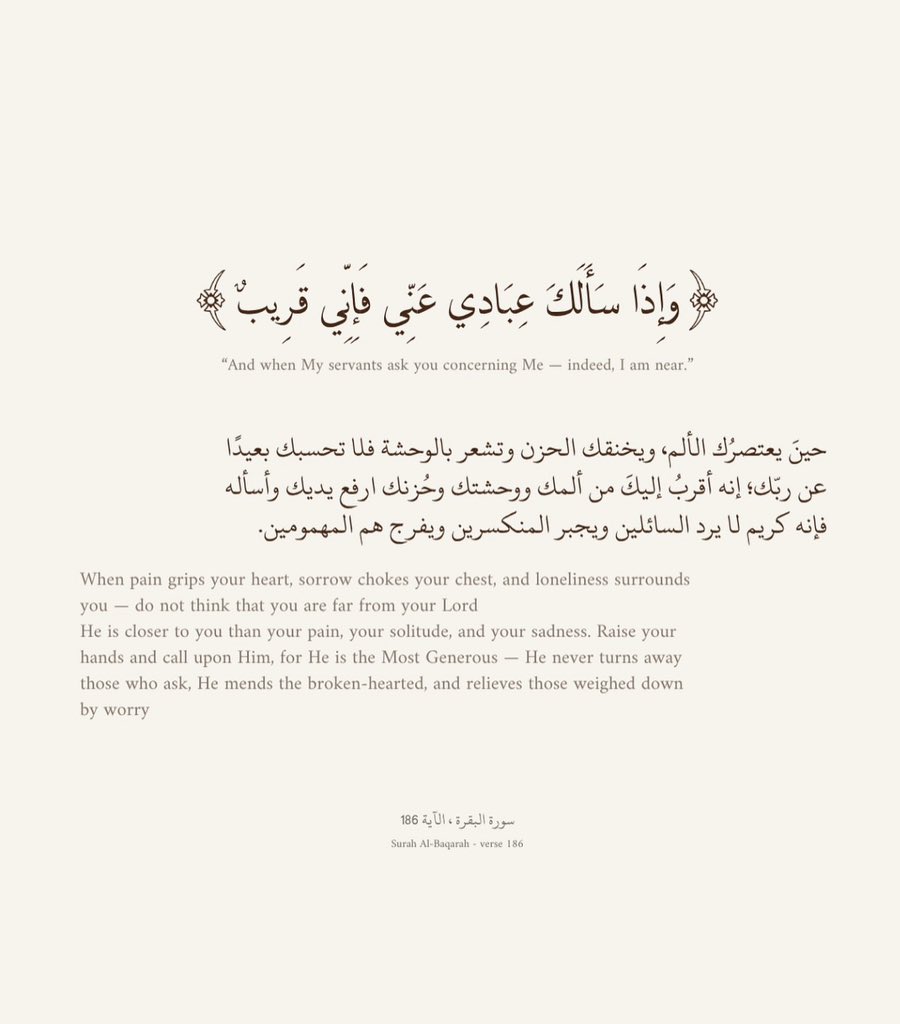 ﴿وَإِذَا سَأَلَكَ عِبَادِي عَنِّي فَإِنِّي قَرِيبٌ﴾
“And when My servants ask you concerning Me — indeed, I am near.”
حينَ يعتصرُك الألم، ويخنقك الحزن وتشعر بالوحشة فلا تحسبك بعيدًا
عن ربّك؛ إنه أقربُ إليكَ من ألمك ووحشتك وحُزنك ارفع يديك وأسأله
فإنه كريم لا يرد السائلين ويجبر المنكسرين ويفرج هم المهمومين.
When pain grips your heart, sorrow chokes your chest, and loneliness surrounds
you — do not think that you are far from your Lord
He is closer to you than your pain, your solitude, and your sadness. Raise your
hands and call upon Him, for He is the Most Generous — He never turns away
those who ask, He mends the broken-hearted, and relieves those weighed down
by worry
سورة البقرة ، الآية 186
Surah Al-Baqarah - verse 186